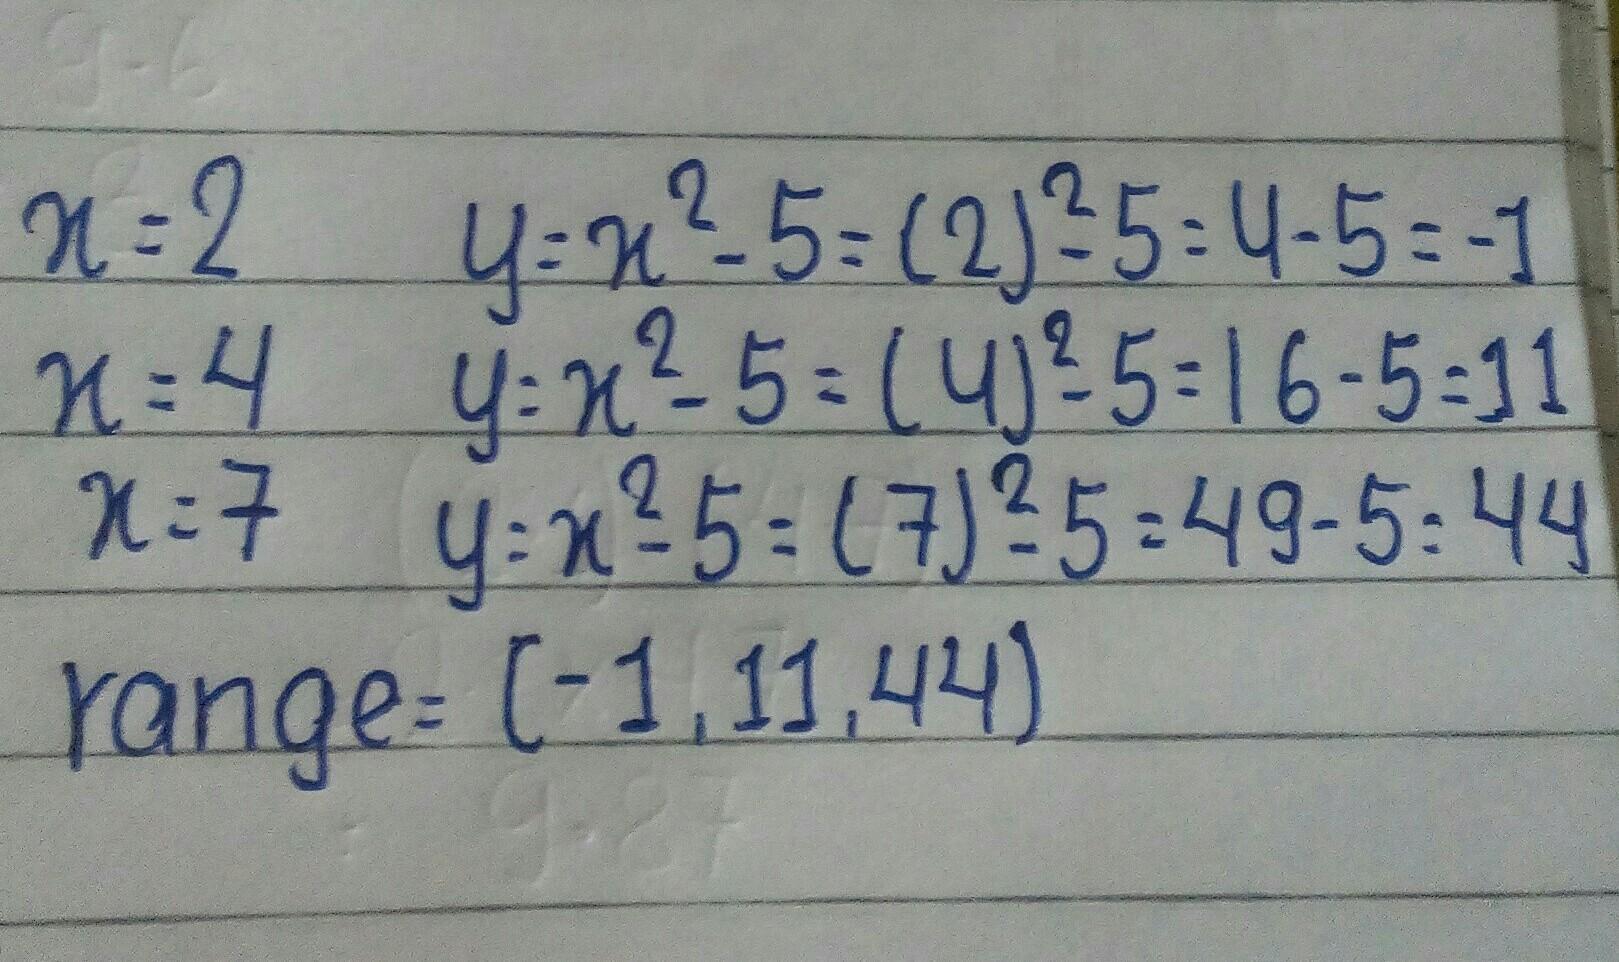 x=2 y=x²-5=(2)²-5=4-5=-1
x=4 y=x²-5=(4)²-5=16-5=11
x=7 y=x²-5=(7)²-5=49-5=44
range=(-1,11,44)